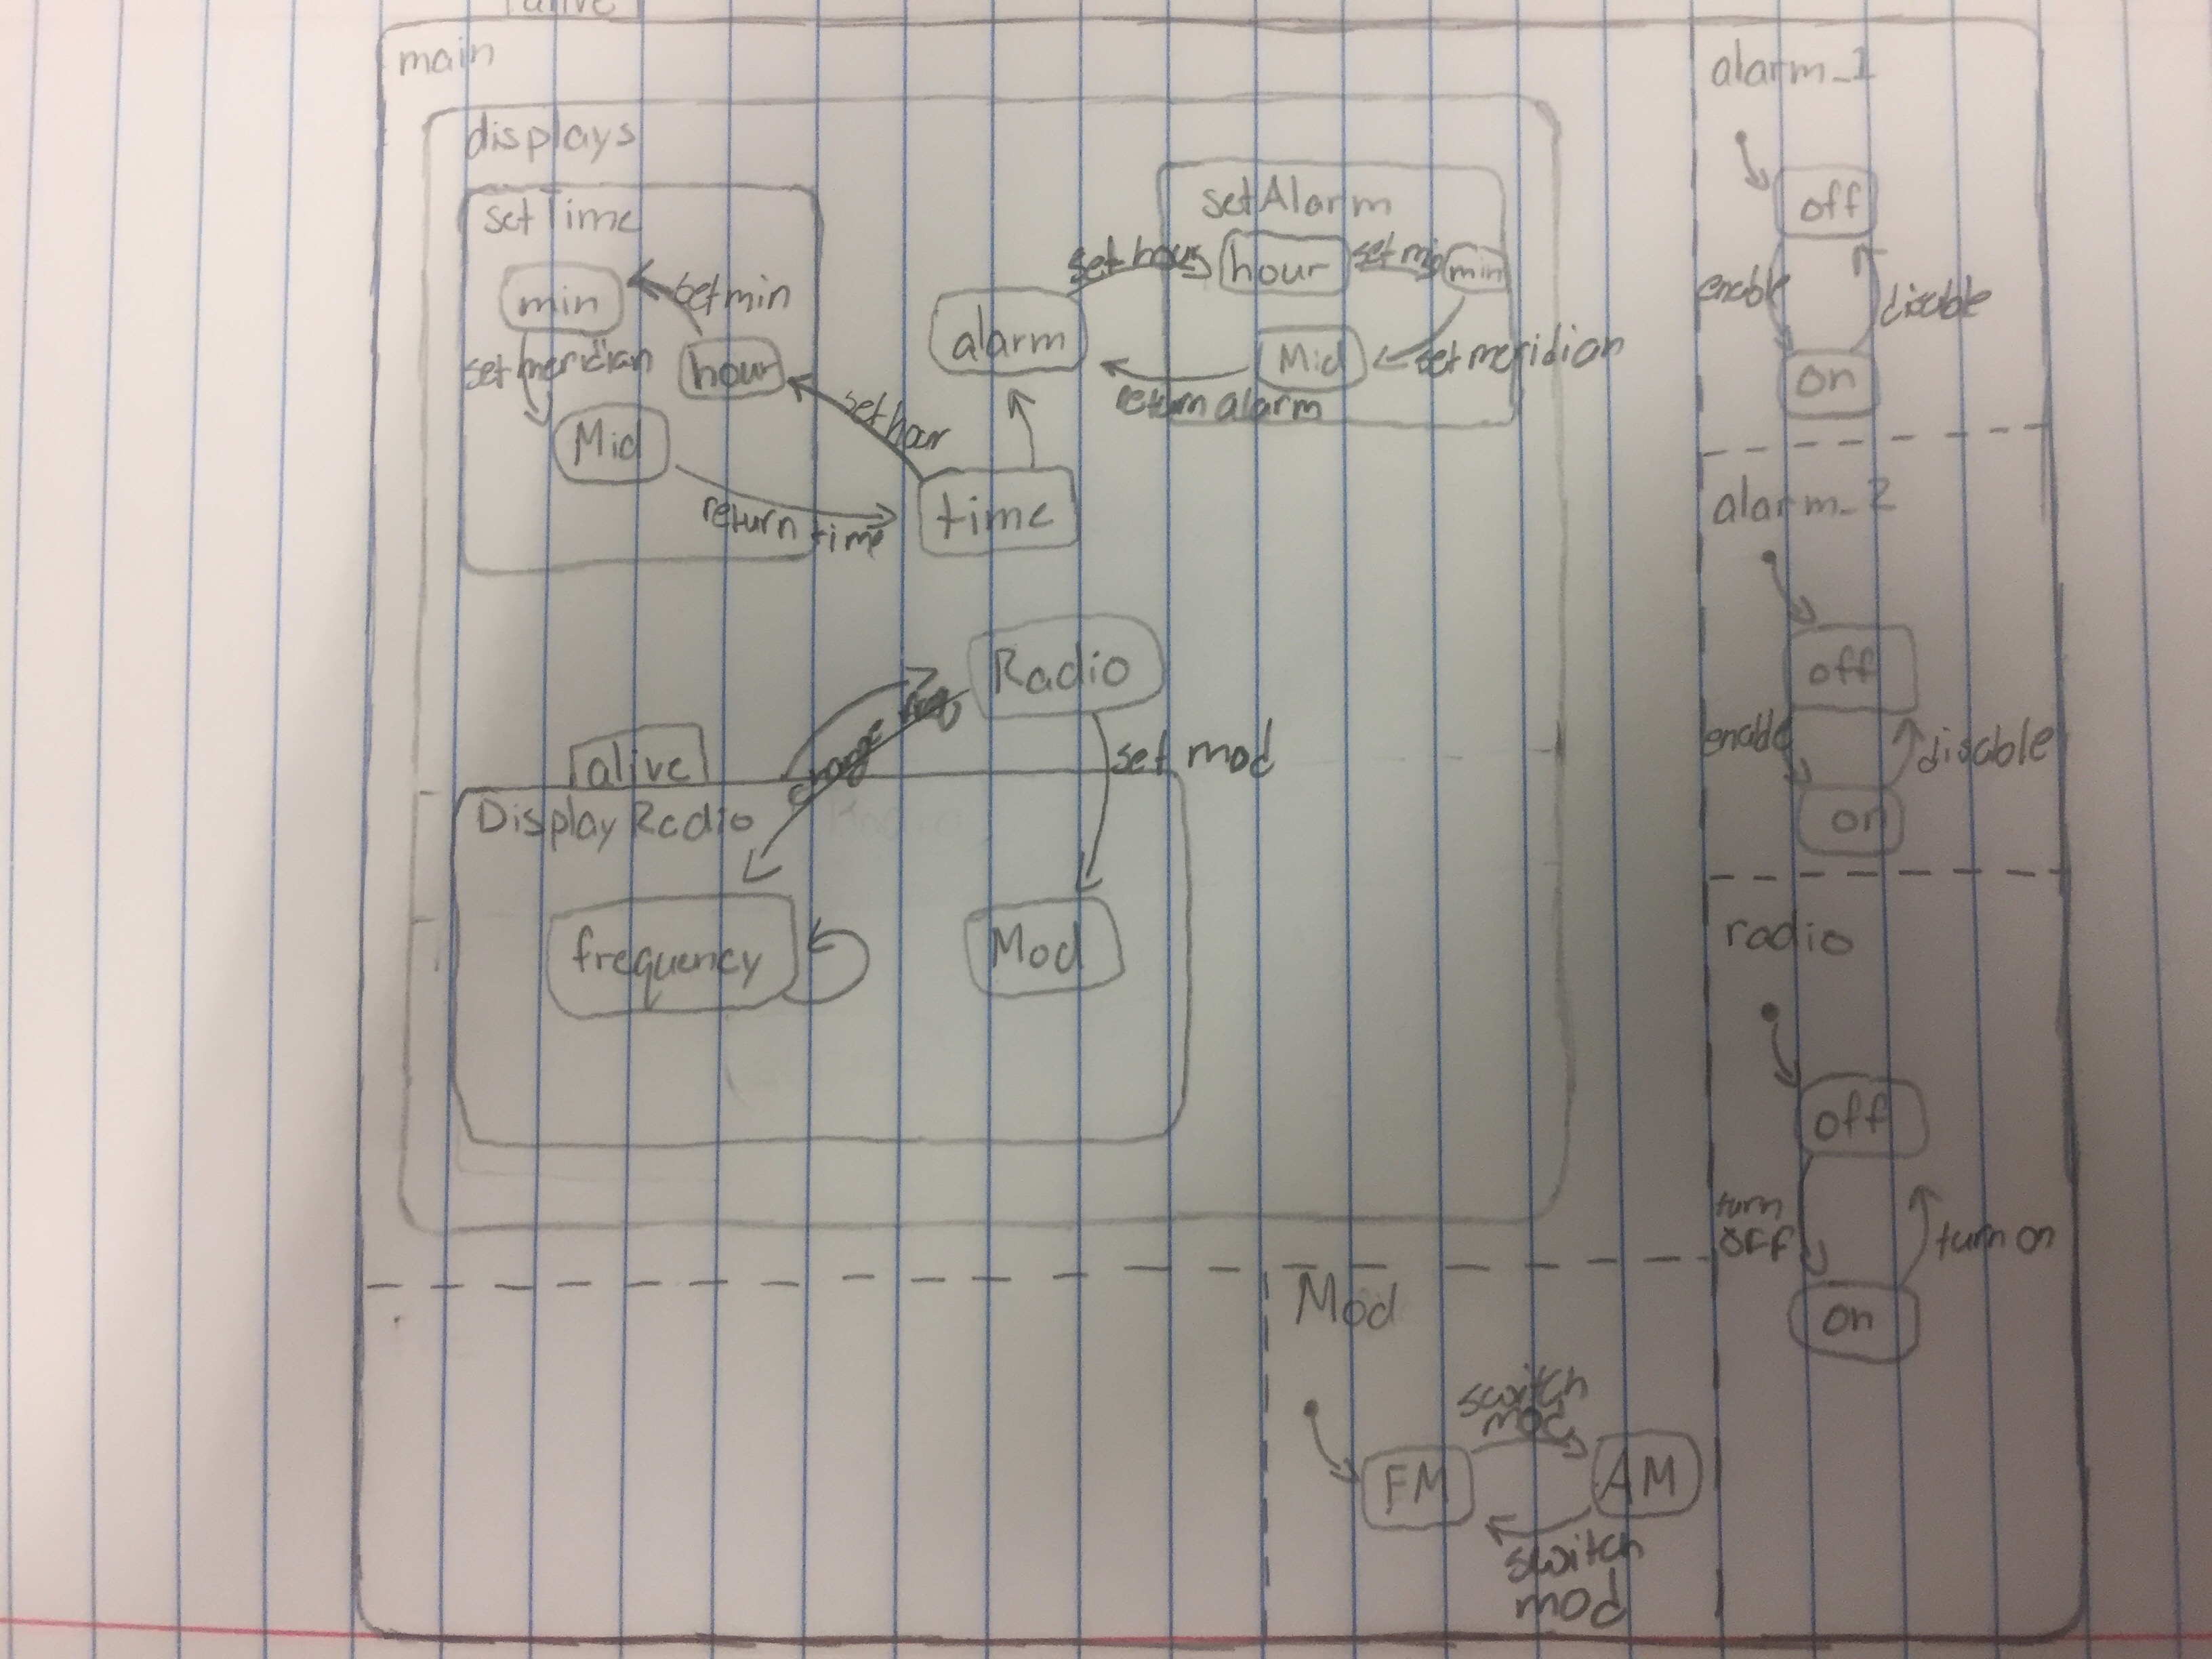 alive
main
displays
setTime
min
set min
set meridian
hour
Mid
set hour
return time
time
alarm
set hour
setAlarm
hour
set min
min
Mid
set meridian
return alarm
Radio
change
set mod
alive
Display Radio
frequency
Mod
alarm_1
off
enable
disable
on
alarm_2
off
enable
disable
on
radio
off
turn
OFF
turn on
on
Mod
switch
mod
FM
AM
switch
mod